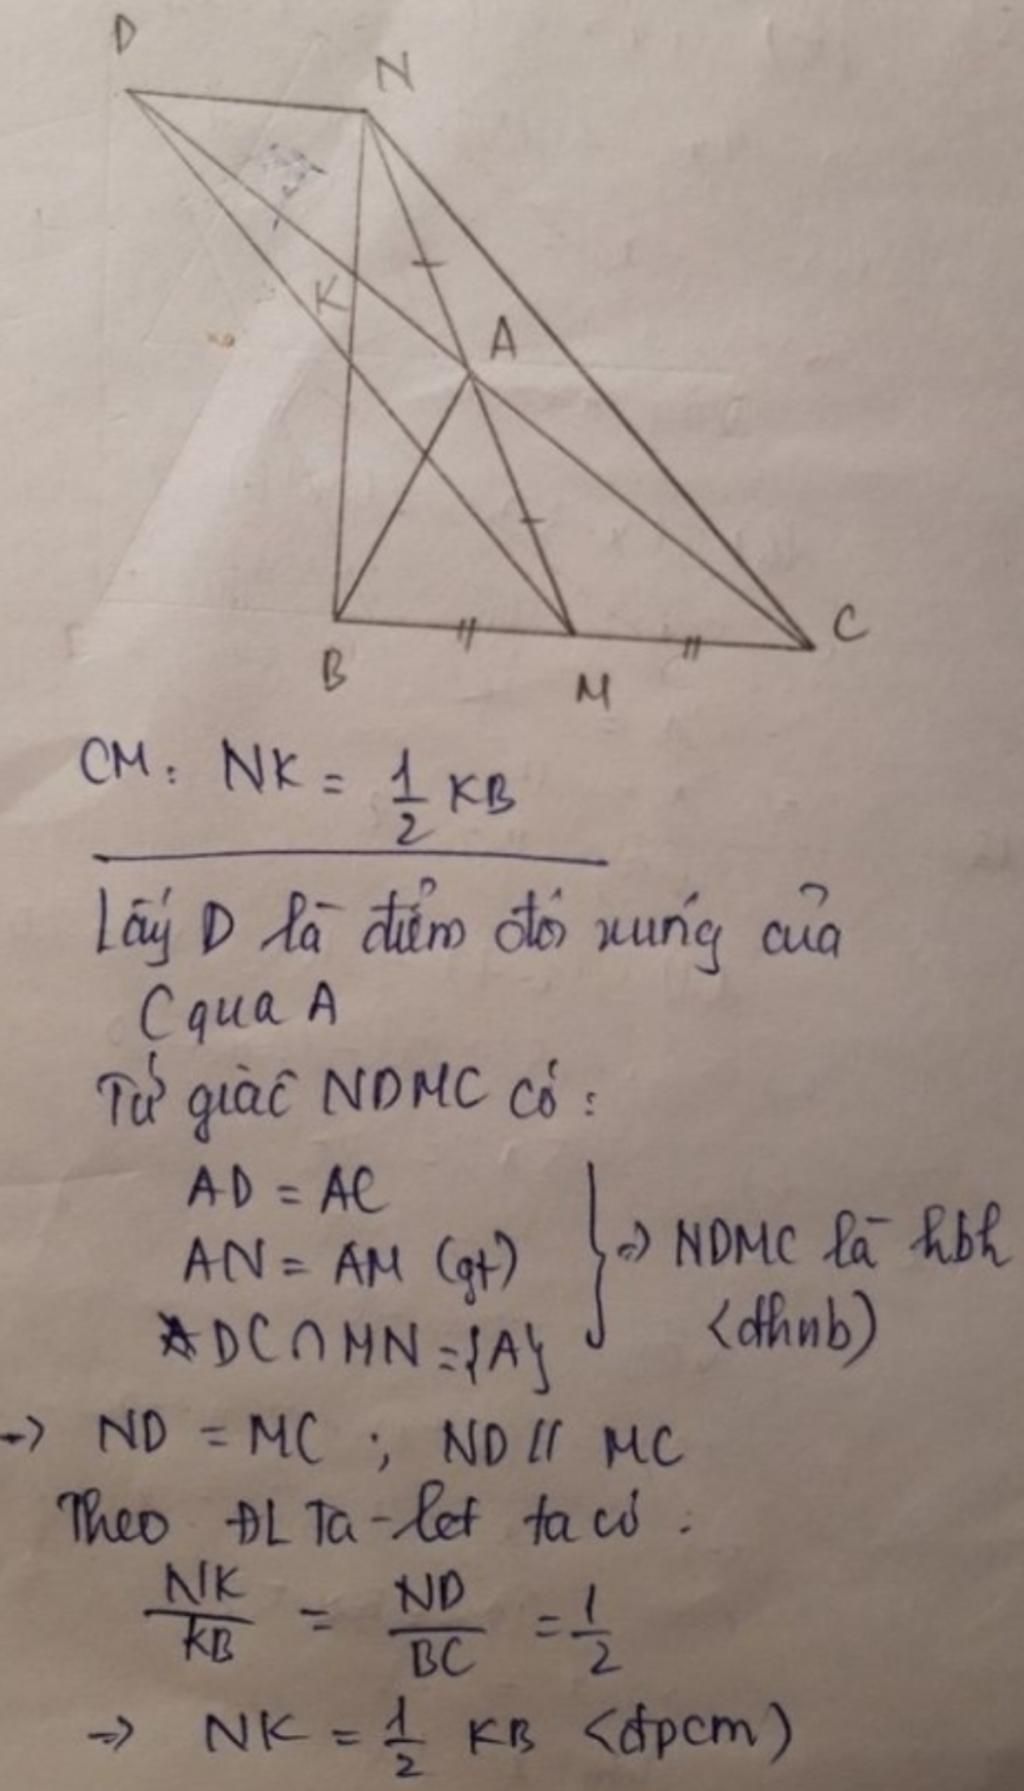 D
N
K
A
B
M
C
CM: NK = 1/2 KB
Lấy D là điểm đối xứng của
C qua A
Tứ giác NDMC có:
AD = AC
AN = AM (gt)
DC ∩ MN = {A}
} => NDMC là hbh
(dhnb)
=> ND = MC ; ND // MC
Theo ĐL Ta-let ta có:
NK/KB = ND/BC = 1/2
=> NK = 1/2 KB (đpcm)